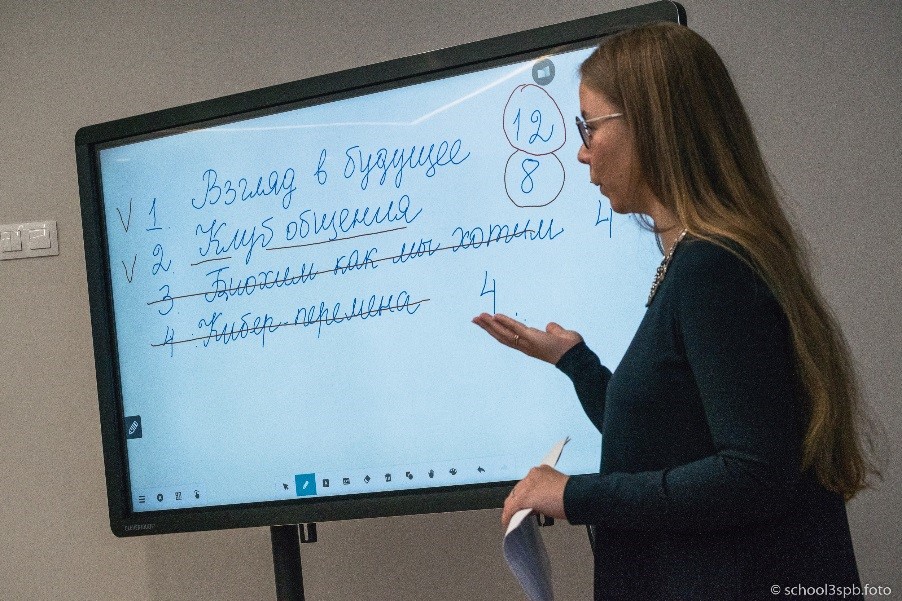 V 1. Взгляд в будущее 12
V 2. Клуб общения 8
3. Биохим как мы хотим 4
4. Кибер-перемена 4
© school3spb.foto